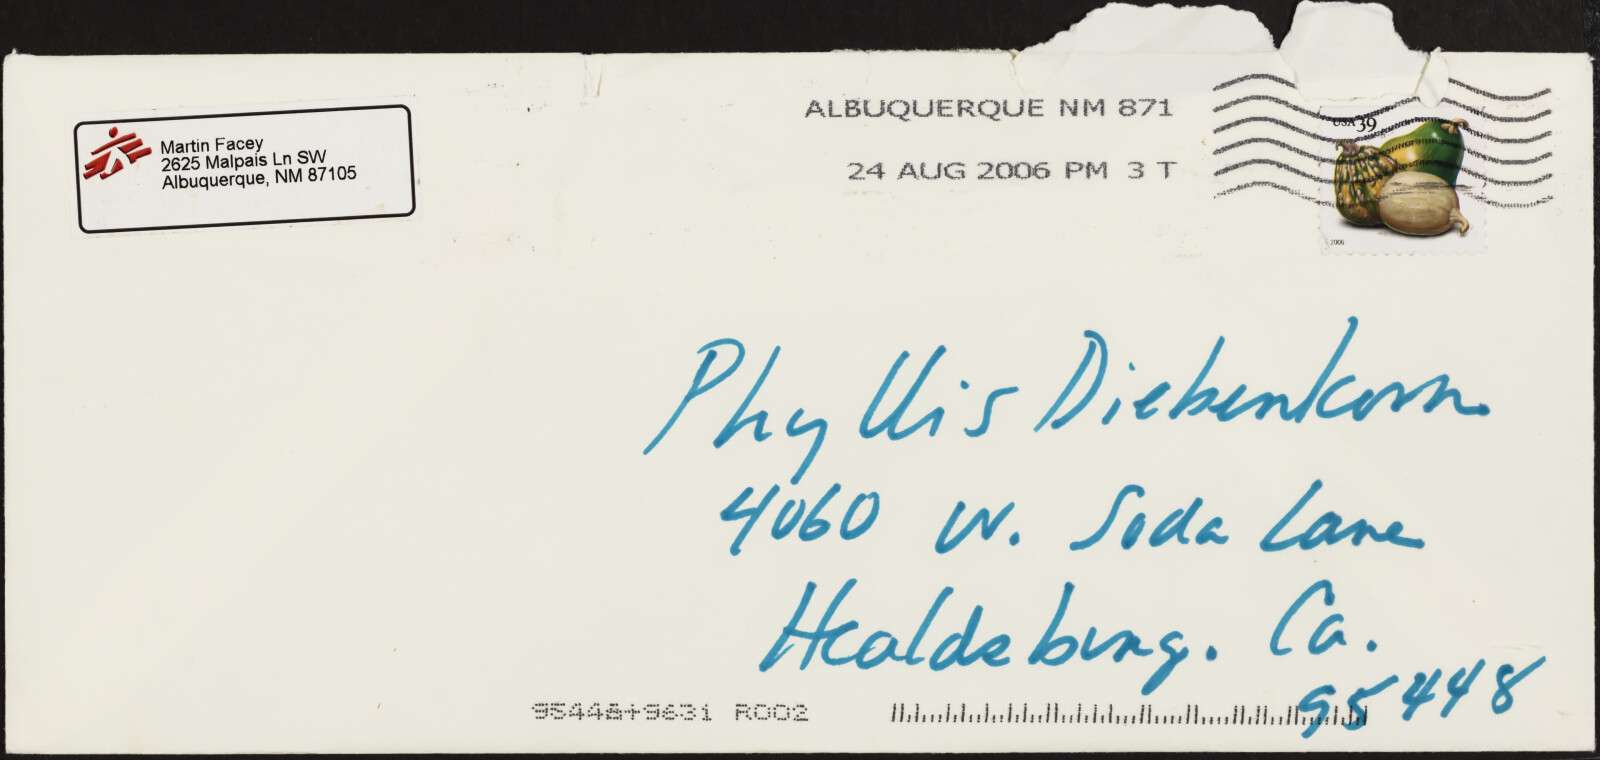 Martin Facey
2625 Malpais Ln SW
Albuquerque, NM 87105
ALBUQUERQUE NM 871
24 AUG 2006 PM 3 T
USA 39
2006
Phyllis Diebenkorn
4060 W. Soda Lane
Healdsburg. Ca.
95448
95448+9631 R002